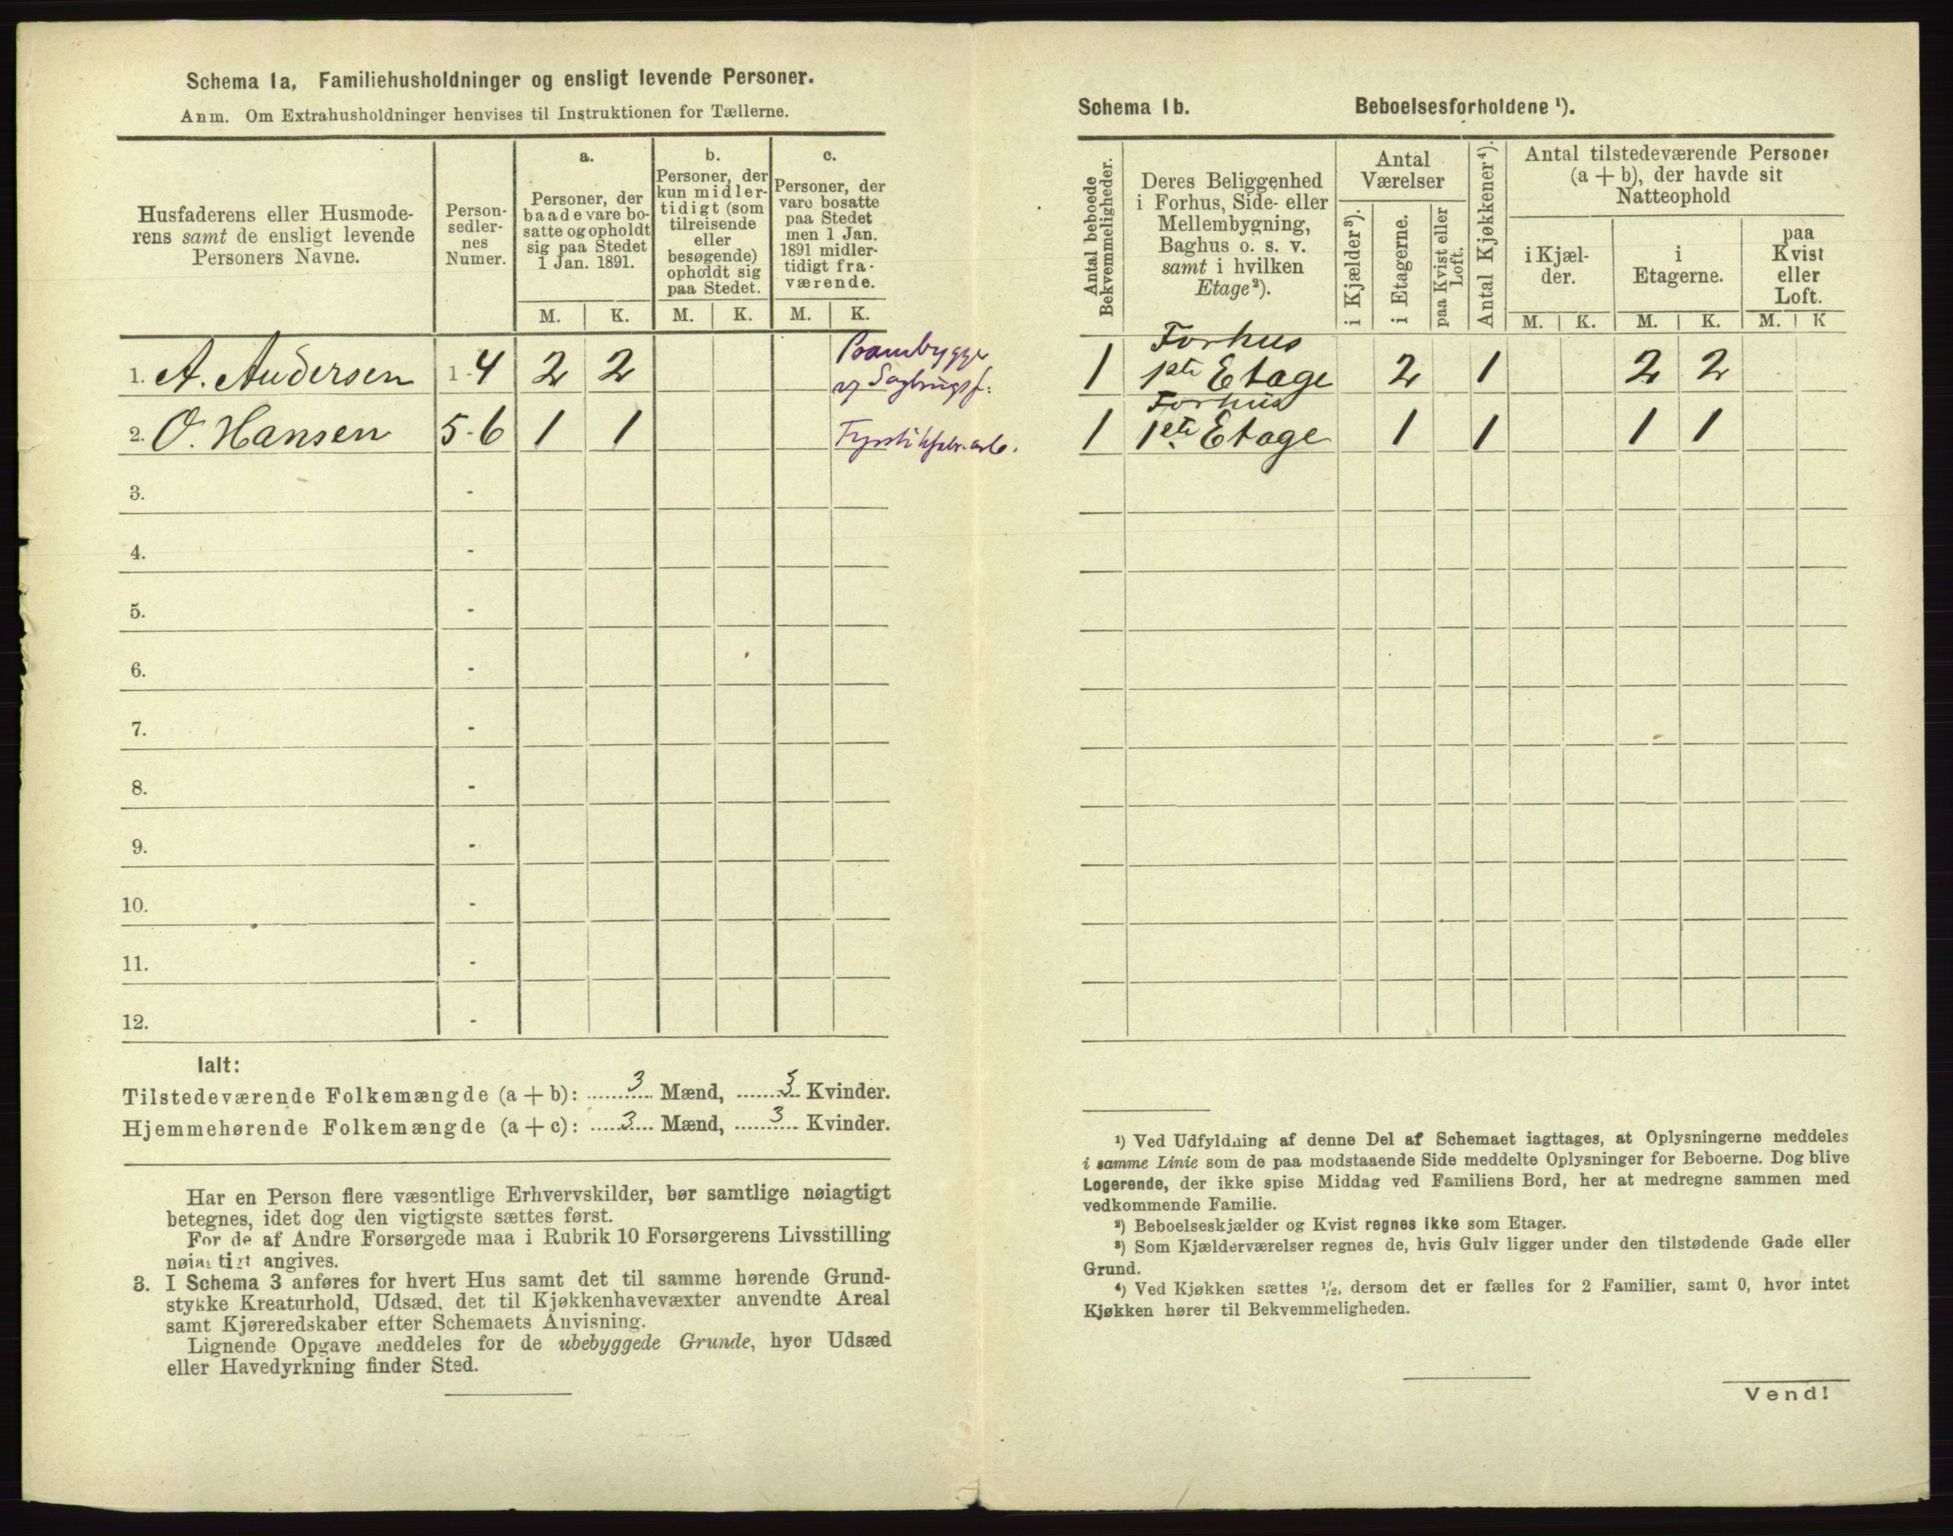 Schema 1a, Familiehusholdninger og ensligt levende Personer.
Anm. Om Extrahusholdninger henvises til Instruktionen for Tællerne.
Husfaderens eller Husmode-
rens samt de ensligt levende
Personers Navne.
Person-
sedler-
nes
Numer.
a.
Personer, der
baade vare bo-
satte og opholdt
sig paa Stedet
1 Jan. 1891.
b.
Personer, der
kun midler-
tidigt (som
tilreisende
eller
besøgende)
opholdt sig
paa Stedet.
c.
Personer, der
vare bosatte
paa Stedet
men 1 Jan.
1891 midler-
tidigt fra-
værende.
M. K. M. K. M. K.
1. A. Andersen 1-4 2 2 Baandbygger
Sagbrugsf.
2. O. Hansen 5-6 1 1 Fyrstikfabr.arb.
3. -
4. -
5. -
6. -
7. -
8. -
9. -
10. -
11. -
12. -
Ialt:
Tilstedeværende Folkemængde (a + b): 3 Mænd, 3 Kvinder.
Hjemmehørende Folkemængde (a + c): 3 Mænd, 3 Kvinder.
Har en Person flere væsentlige Erhvervskilder, bør samtlige nøiagtigt
betegnes, idet dog den vigtigste sættes først.
For de af Andre Forsørgede maa i Rubrik 10 Forsørgerens Livsstilling
nøiagtigt angives.
3. I Schema 3 anføres for hvert Hus samt det til samme hørende Grund-
stykke Kreaturhold, Udsæd, det til Kjøkkenhavevæxter anvendte Areal
samt Kjøreredskaber efter Schemaets Anvisning.
Lignende Opgave meddeles for de ubebyggede Grunde, hvor Udsæd
eller Havedyrkning finder Sted.
Schema 1b. Beboelsesforholdene ¹).
Antal beboede
Bekvemmeligheder.
Deres Beliggenhed
i Forhus, Side- eller
Mellembygning,
Baghus o. s. v.
samt i hvilken
Etage²).
Antal
Værelser
i Kjælder³).
i Etagerne.
paa Kvist eller
Loft.
Antal Kjøkkener⁴).
Antal tilstedeværende Personer
(a + b), der havde sit
Natteophold
i Kjæl-
der.
i
Etagerne.
paa
Kvist
eller
Loft.
M. K. M. K. M. K
1 Forhus
1ste Etage 2 1 2 2
1 Forhus
1ste Etage 1 1 1 1
¹) Ved Udfyldning af denne Del af Schemaet iagttages, at Oplysningerne meddeles
i samme Linie som de paa modstaaende Side meddelte Oplysninger for Beboerne. Dog blive
Logerende, der ikke spise Middag ved Familiens Bord, her at medregne sammen med
vedkommende Familie.
²) Beboelseskjælder og Kvist regnes ikke som Etager.
³) Som Kjælderværelser regnes de, hvis Gulv ligger under den tilstødende Gade eller
Grund.
⁴) Ved Kjøkken sættes ½, dersom det er fælles for 2 Familier, samt 0, hvor intet
Kjøkken hører til Bekvemmeligheden.
Vend!